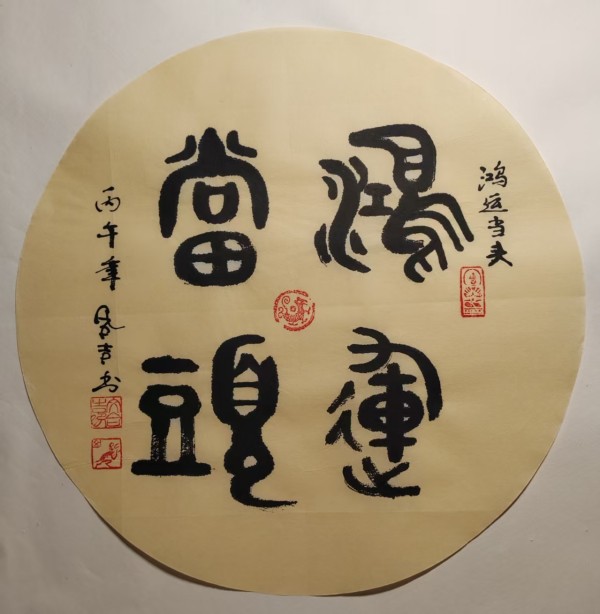 鸿运当头
鴻運
當頭
丙午年 吉书